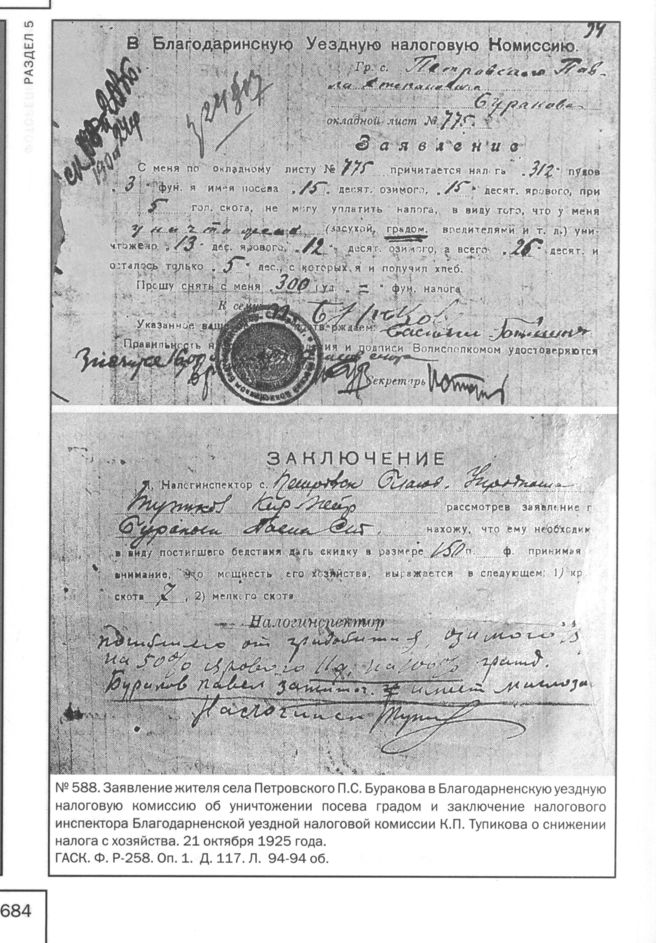 РАЗДЕЛ 5
94
В Благодаринскую Уездную налоговую Комиссию.
Гр. с. Петровского Пав-
ла Степановича
Буракова
окладной лист № 775.
Заявление
С меня по окладному листу № 775 причитается налга 312 пудов
3 фун. я имея посева 15 десят. озимого, 15 десят. ярового, при
5 гол. скота, не могу уплатить налога, в виду того, что у меня
(засухой, градом, вредителями и т. д.) уни-
чтожено 13 дес. ярового, 12 десят. озимого, а всего 25 десят. и
осталось только 5 дес., с которых я и получил хлеб.
Прошу снять с меня 300 пуд. = фун. налога
К сему
Указанное выше подтверждаем:
Правильность и подписи Волисполкомом удостоверяются
Секретарь
ЗАКЛЮЧЕНИЕ
Я, Налогинспектор с. Петровск
Тупиков рассмотрев заявление г
Буракова Павла Ст. нахожу, что ему необходим
в виду постигшего бедствия дать скидку в размере 150 п. ф. принимая
внимание, что мощность его хозяйства, выражается в следующем: 1) кр.
скота 7, 2) мелкого скота
Налогинспектор
от градобития, озимого
на 50% ярового на 100%
Бураков Павел
№ 588. Заявление жителя села Петровского П.С. Буракова в Благодарненскую уездную
налоговую комиссию об уничтожении посева градом и заключение налогового
инспектора Благодарненской уездной налоговой комиссии К.П. Тупикова о снижении
налога с хозяйства. 21 октября 1925 года.
ГАСК. Ф. Р-258. Оп. 1. Д. 117. Л. 94-94 об.
684